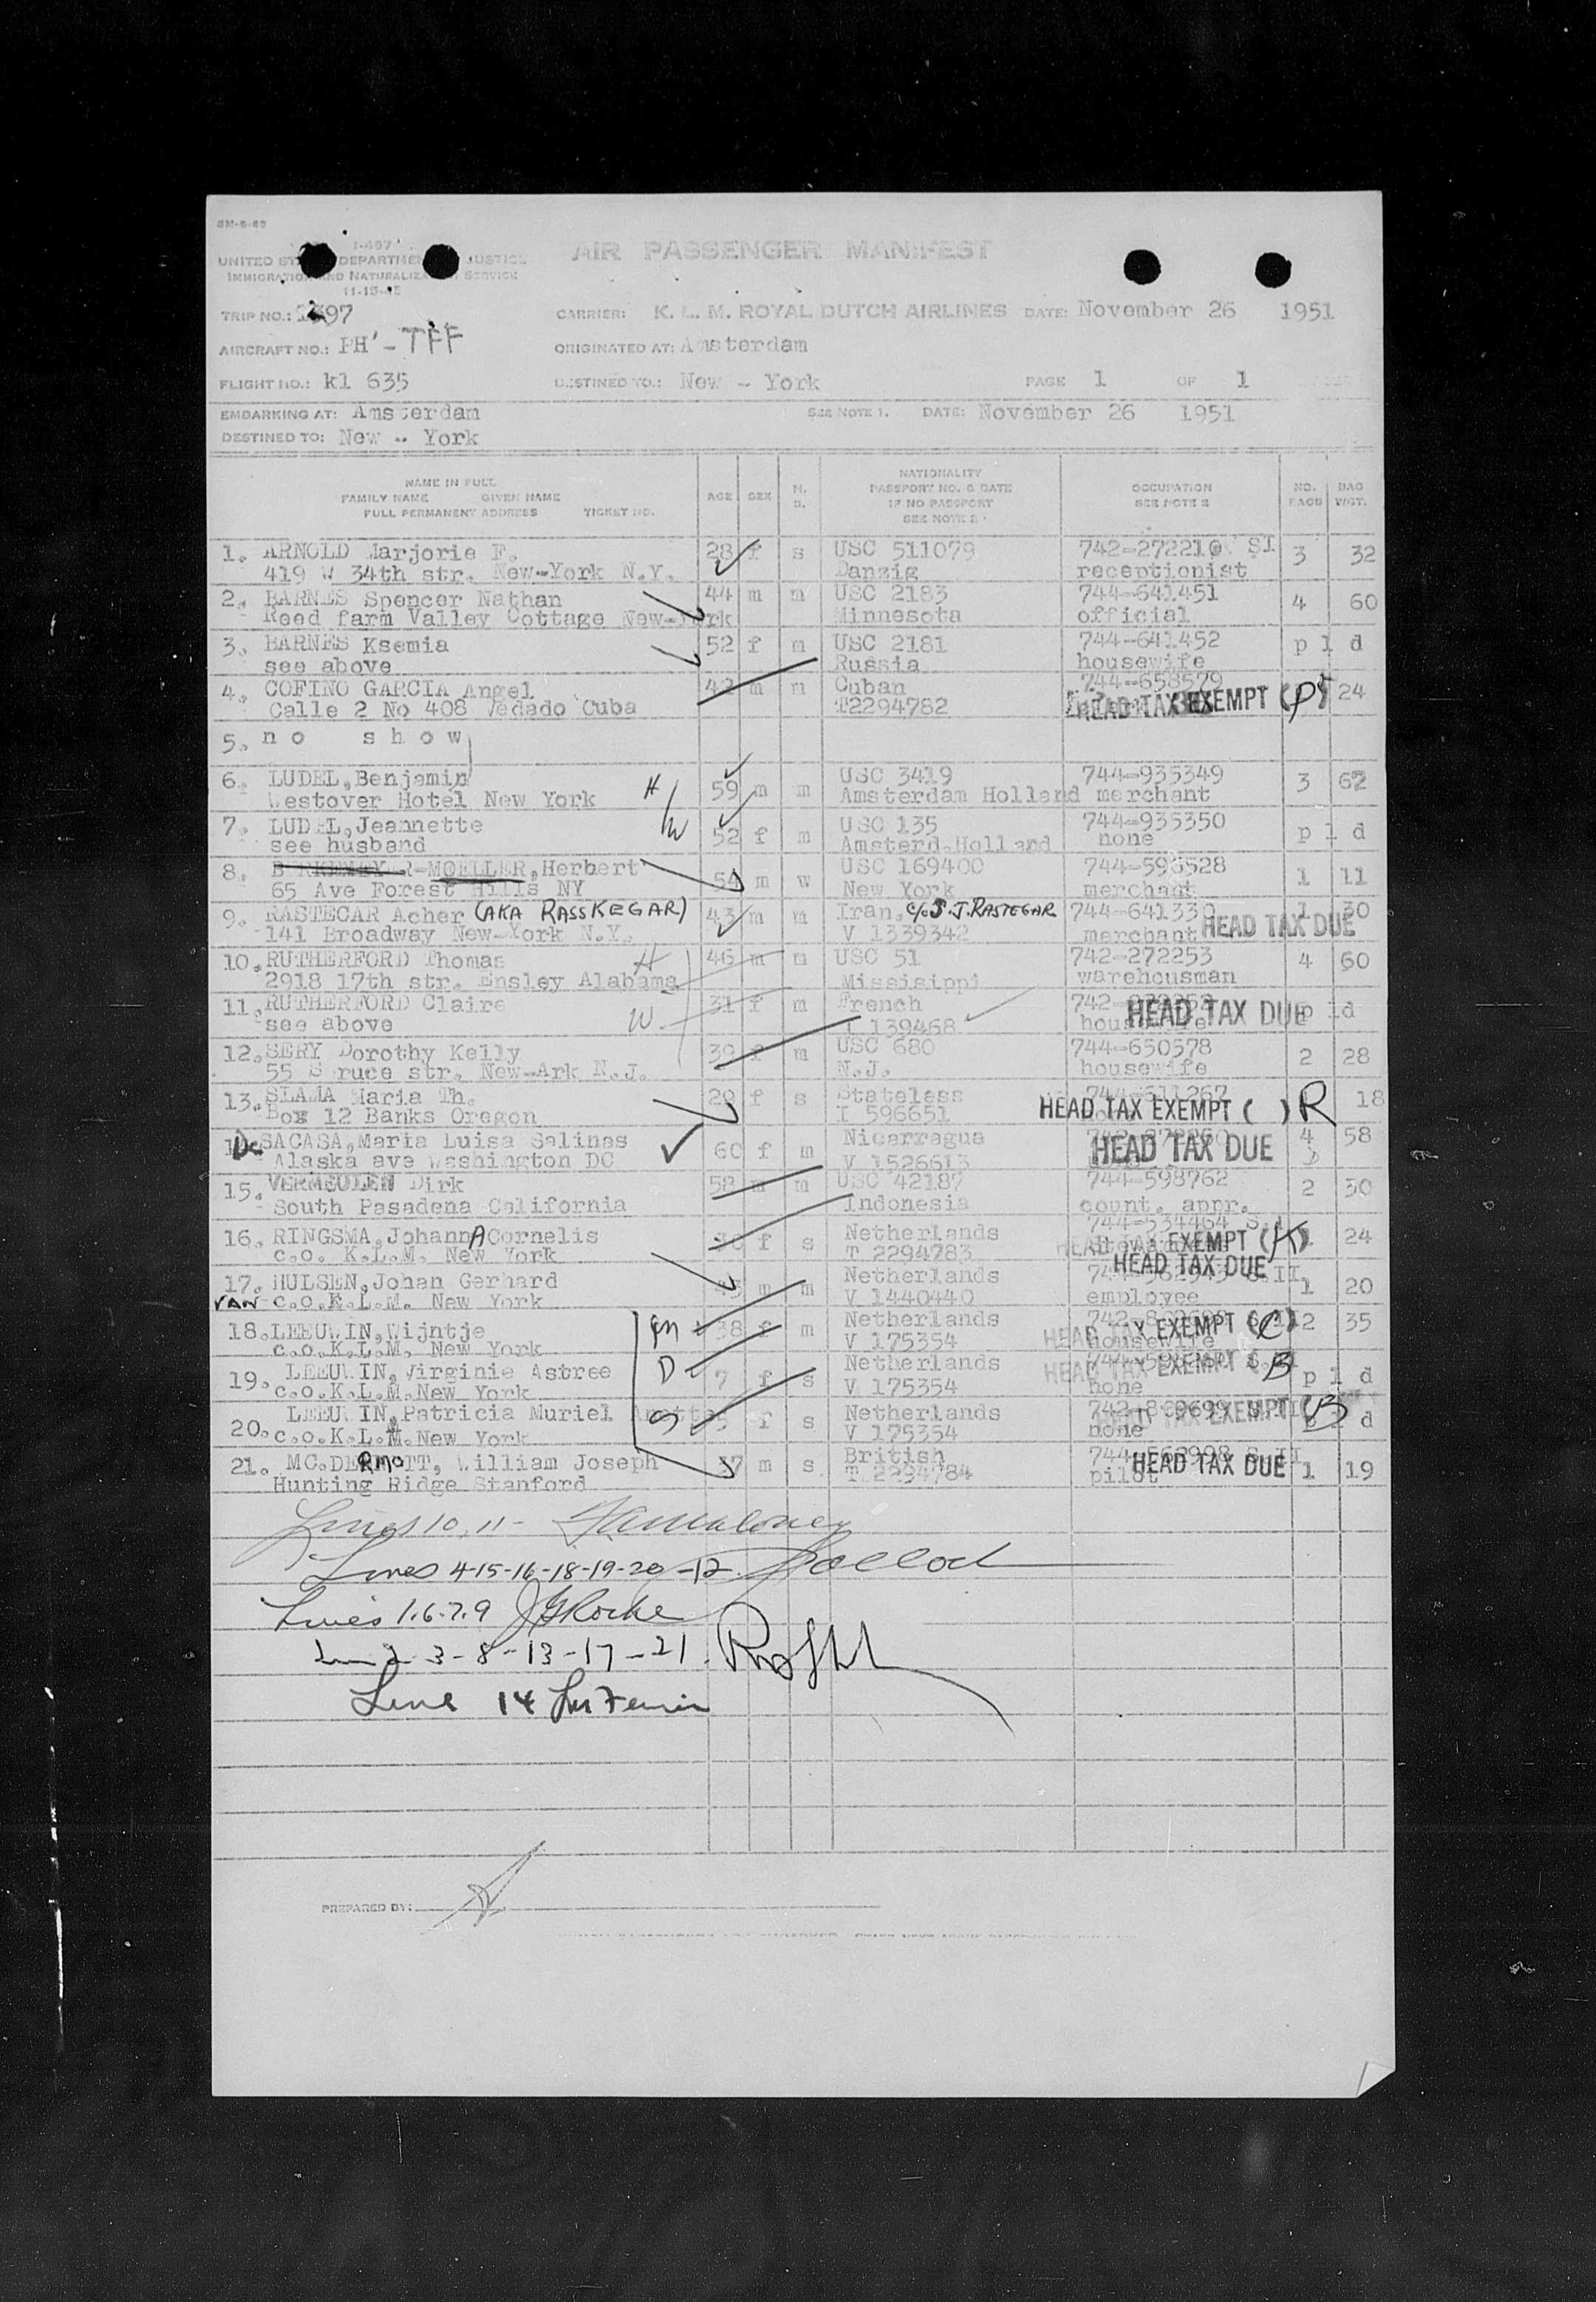 5M-6-48
I-467
UNITED DEPARTMENT JUSTICE
IMMIGRATION AND NATURALIZATION SERVICE
11-15-45
AIR PASSENGER MANIFEST
TRIP NO.: 97
CARRIER: K. L. M. ROYAL DUTCH AIRLINES DATE: November 26 1951
AIRCRAFT NO.: PH - TFF
ORIGINATED AT: Amsterdam
FLIGHT NO.: kl 635
DESTINED TO: New - York PAGE 1 OF 1
EMBARKING AT: Amsterdam
SEE NOTE 1. DATE: November 26 1951
DESTINED TO: New - York
NAME IN FULL
FAMILY NAME GIVEN NAME
FULL PERMANENT ADDRESS TICKET NO.
AGE SEX M. S.
NATIONALITY
PASSPORT NO. & DATE
IF NO PASSPORT
SEE NOTE 2
OCCUPATION
SEE NOTE 2
NO. BAGS
BAG WGT.
1. ARNOLD Marjorie F. 28 f s USC 511079 742-272210 SI 3 32
419 W 34th str. New-York N.Y. Danzig receptionist
2. BARNES Spencer Nathan 44 m m USC 2183 744-641451 4 60
Reed farm Valley Cottage New-York Minnesota official
3. BARNES Ksemia 52 f m USC 2181 744-641452 p l d
see above Russia housewife
4. COFINO GARCIA Angel 42 m m Cuban 744-658579 24
Calle 2 No 408 Vedado Cuba T2294782 HEAD TAX EXEMPT
5. no show
6. LUDEL, Benjamin H 59 m m USC 3419 744-935349 3 62
Westover Hotel New York Amsterdam Holland merchant
7. LUDEL, Jeannette W 52 f m USC 135 744-935350 p l d
see husband Amsterd. Holland none
8. -MOELLER, Herbert 54 m w USC 169400 744-596528 1 11
65 Ave Forest Hills NY New York merchant
9. RASTECAR Acher (AKA RASSKEGAR) 43 m m Iran. c/o S.J. RASTEGAR 744-641330 1 30
141 Broadway New-York N.Y. V 1339342 merchant HEAD TAX DUE
10. RUTHERFORD Thomas H 46 m m USC 51 742-272253 4 60
2918 17th str. Ensley Alabama Missisippi warehousman
11. RUTHERFORD Claire 31 f m French HEAD TAX DUE
see above W T 139468
12. SERY Dorothy Keily 39 f m USC 680 744-650578 2 28
55 Spruce str. New-Ark N.J. N.J. housewife
13. SLAMA Maria Th. 29 f s Stateless 744-611267 18
Box 12 Banks Oregon I 596651 HEAD TAX EXEMPT ( ) R
14. De SACASA, Maria Luisa Salinas 60 f m Nicarragua 4 58
Alaska ave Washington DC V 1526613 HEAD TAX DUE
15. VERMEULEN Dirk 58 m m USC 42187 744-598762 2 30
South Pasadena California Indonesia count. appr.
16. RINGSMA, JohannA Cornelis f s Netherlands 744-534464 24
c.o. K.L.M. New York T 2294783 HEAD TAX EXEMPT
17. HULSEN, Johan Gerhard 45 m m Netherlands HEAD TAX DUE 1 20
VAN c.o.K.L.M. New York V 1440440 employee
18. LEEUWIN, Wijntje m 38 f m Netherlands HEAD TAX EXEMPT (C) 2 35
c.o.K.L.M. New York V 175354 housewife
19. LEEUWIN, Virginie Astree D 7 f s Netherlands HEAD TAX EXEMPT B p l d
c.o.K.L.M. New York V 175354 none
20. LEEUWIN, Patricia Muriel f s Netherlands HEAD TAX EXEMPT (B) d
c.o.K.L.M. New York V 175354 none
21. MC.DERMOTT, William Joseph 37 m s British 744-562998 S II 1 19
Hunting Ridge Stanford T 2294784 pilot HEAD TAX DUE
Lines 10, 11-
Lines 4-15-16-18-19-20-12
Lines 1.6.7.9 J G Rocke
2 3-8-13-17-21.
Line 14
PREPARED BY: